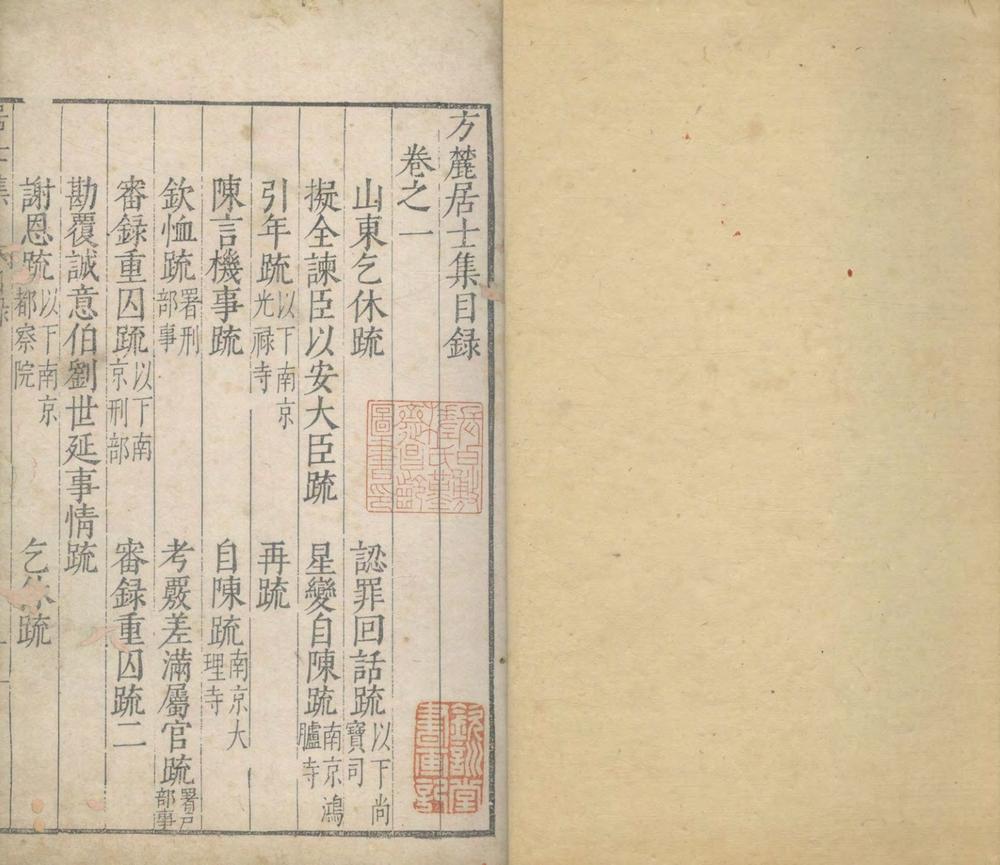 方麓居士集目録
卷之一
山東乞休䟽 認罪回話䟽以下尚寶司
擬全諫臣以安大臣䟽 星變自陳䟽南京鴻臚寺
引年䟽以下南京光禄寺 再䟽
陳言機事䟽 自陳䟽南京大理寺
欽恤䟽署刑部事 考覈差滿屬官䟽署戶部事
審録重囚䟽以下南京刑部 審録重囚䟽二
勘覆誠意伯劉世延事情䟽
謝恩䟽以下南京都察院 乞休䟽